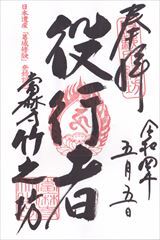 奉拝
令和四年
五月五日
役行者
日本遺産「葛城修験」
當麻寺竹之坊